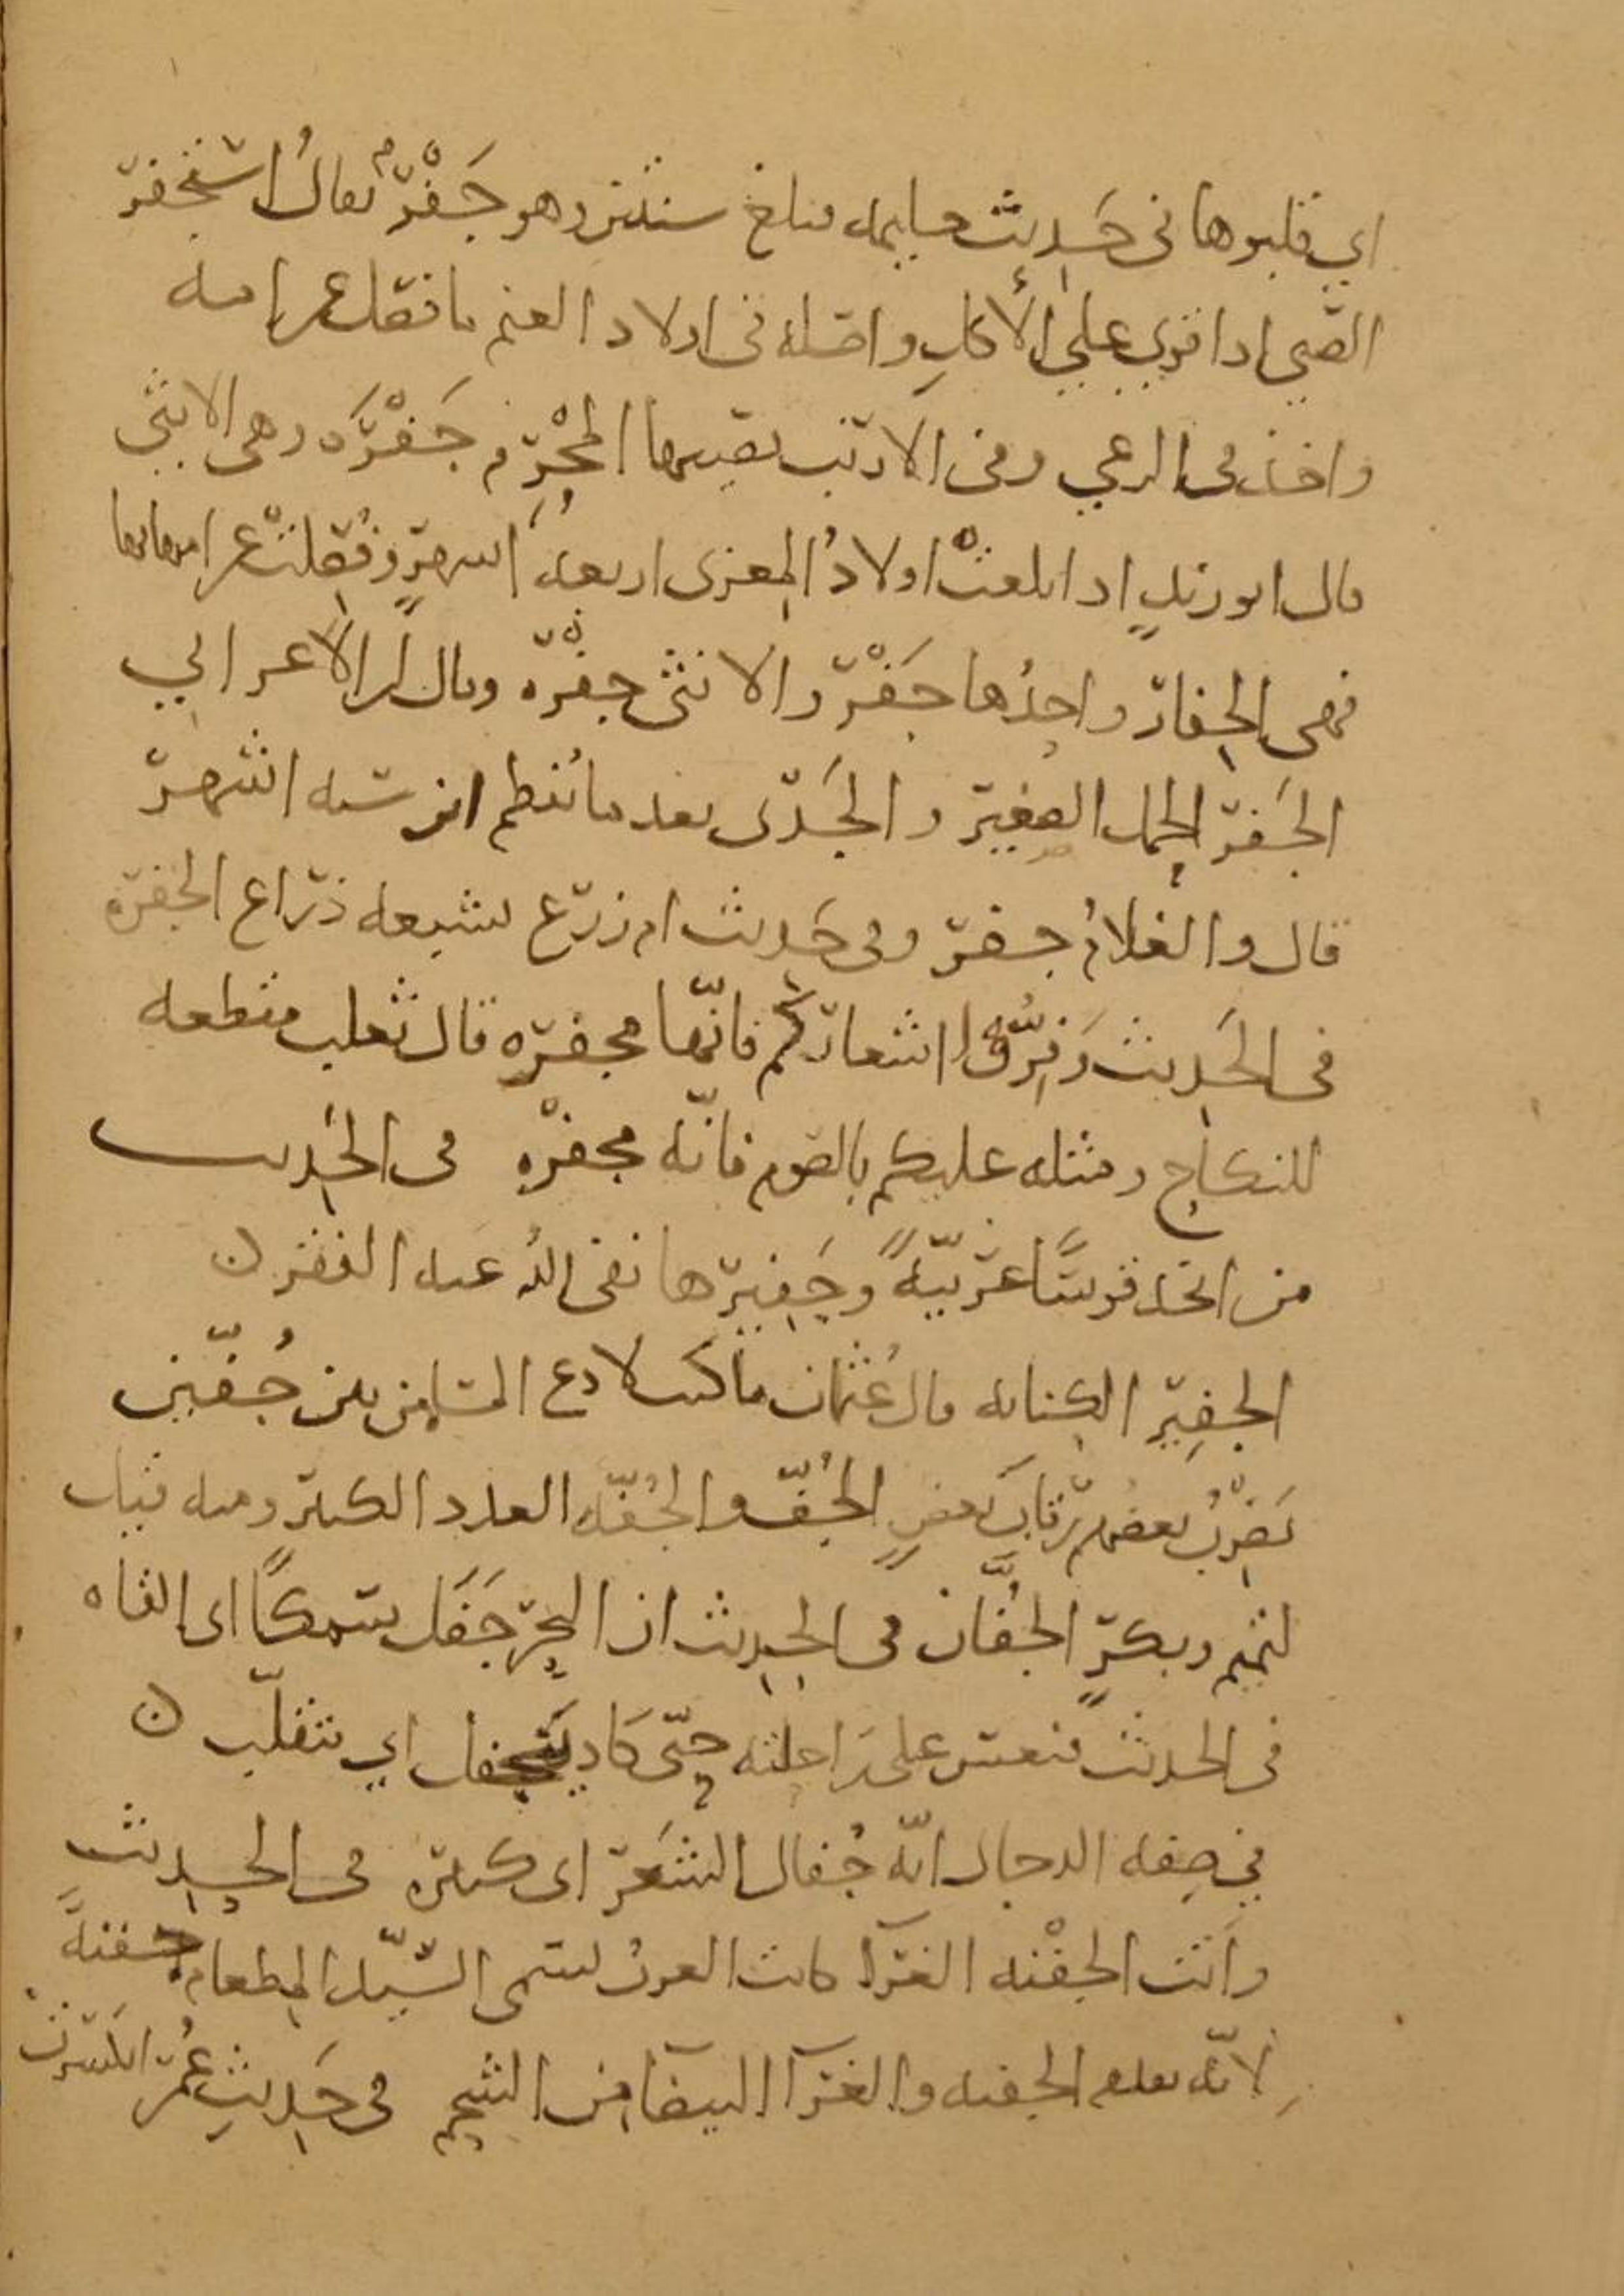 اي قلبوها في حَديث حليمه فبلغ سنتين وهو جَفْرٌ يقالُ استجفر
الصّبي اذا قوي علي الأكلِ واصله في اولاد الغنم ما فصل عن امه
واخذ في الرعي وفي الارنب يصيبها المُحْرِم جَفْرَه وهي الانثي
قال ابو زيدٍ اذا بلغتْ اولادُ المعزى اربعه اشهرٍ وفُصِلتْ عن امهاتها
فهي الجِفار واحدُها جَفْر والانثى جفْره وقال ابن الاعرابي
الجَفر الحمل الصغير والجَدْى بعد ما يُفطم ابن سته اشهر
قال والغلامُ جفر وفي حَديث ام زرع يشبعه ذراع الجفره
في الحَديث وَفِّرُوا اشعاركم فانّها مجفره قال ثعلب مقطعه
للنكاح ومثله عليكم بالصوم فانّه مجفْره في الحَديث
من اتخذ قوسًا عَربيّهً وجَفيرها نفى اللهُ عنه الفقر ن
الجفِير الكنانه قال عُثمان ما كنت لادع المسلمين بين جُفّين
يَضْرِبُ بعضهم رقابَ بعضٍ الجُفّ والجُفّه العدد الكثير ومنه قيل
لتميم وبكرٍ الجُفّان في الحديث ان البحر جَفَل سَمكًا اى القاه
في الحديث فنعس على راحلته حتّى كَاد ينجفل اي ينقلب ن
في صِفه الدجال انّه جُفال الشَعر اى كثيره في الحديث
وانت الجفْنه الغرّآ كانت العربُ تسمى السّيّد المِطعام جفنهً
لانّه يطعم الجفنه والغرّآ البيضآ من الشحم في حَديثِ عُمر انكسرت